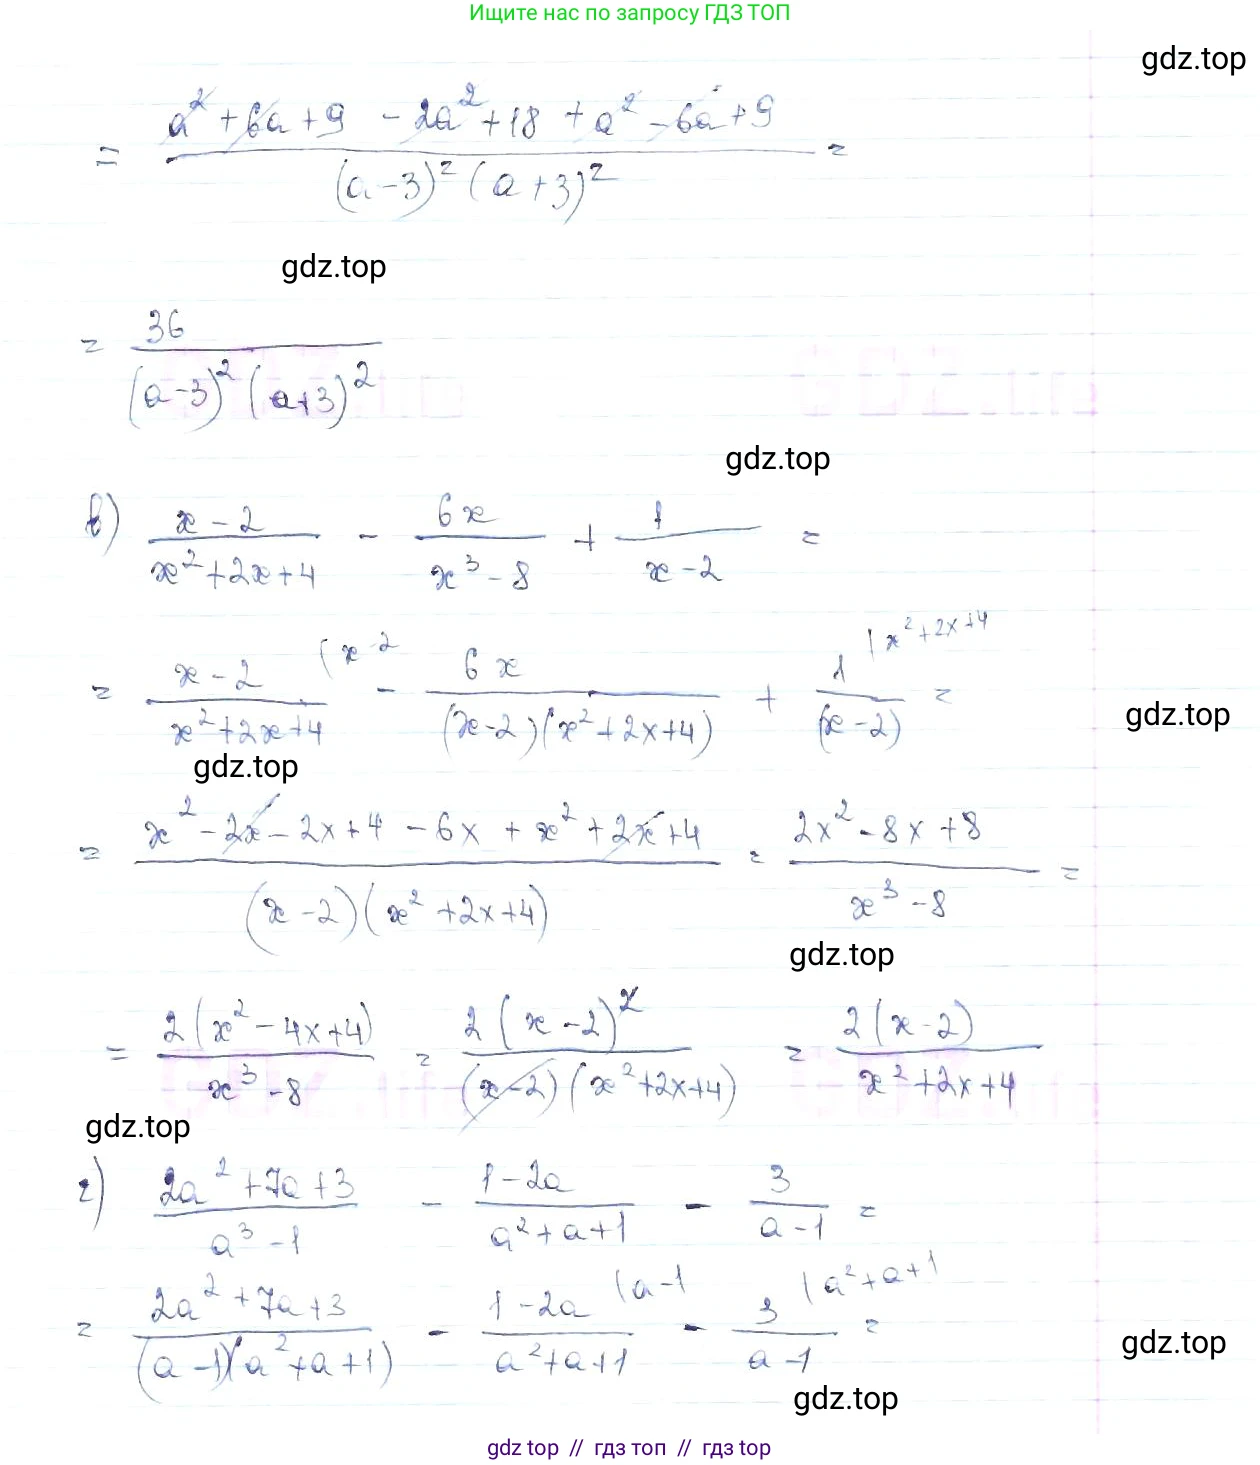 Ищите нас по запросу ГДЗ ТОП
gdz.top
= (a² + 6a + 9 - 2a² + 18 + a² - 6a + 9) / ((a-3)² (a+3)²) =
gdz.top
= 36 / ((a-3)² (a+3)²)
gdz.top
в) (x-2)/(x²+2x+4) - 6x/(x³-8) + 1/(x-2) =
= (x-2)/(x²+2x+4) (x-2 - 6x/((x-2)(x²+2x+4)) + 1/(x-2) (x²+2x+4 =
gdz.top
gdz.top
= (x² - 2x - 2x + 4 - 6x + x² + 2x + 4) / ((x-2)(x²+2x+4)) = (2x² - 8x + 8)/(x³-8) =
gdz.top
= 2(x²-4x+4)/(x³-8) = 2(x-2)²/((x-2)(x²+2x+4)) = 2(x-2)/(x²+2x+4)
gdz.top
г) (2a²+7a+3)/(a³-1) - (1-2a)/(a²+a+1) - 3/(a-1) =
= (2a²+7a+3)/((a-1)(a²+a+1)) - (1-2a)/(a²+a+1) (a-1 - 3/(a-1) (a²+a+1 =
gdz.top
gdz.top
gdz top // гдз топ // гдз top